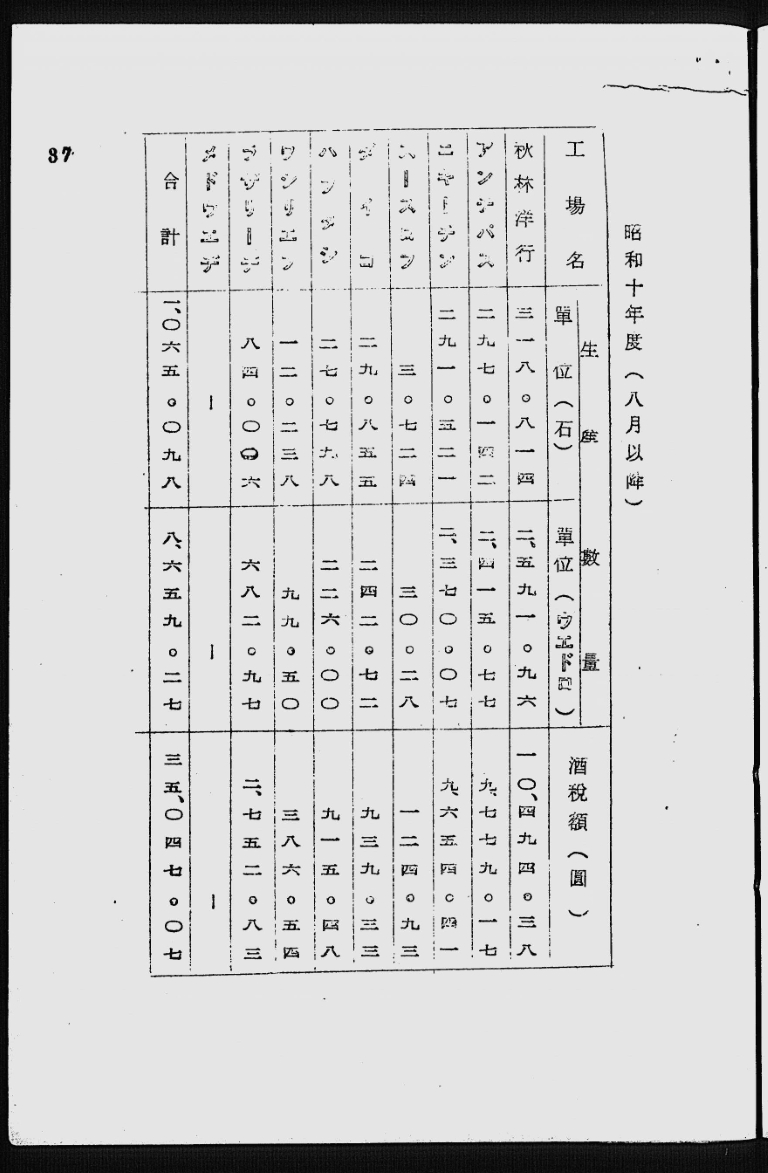 昭和十年度(八月以降)
工場名 生産數量 酒税額(圓)
單位(石) 單位(ウエドロ)
秋林洋行 三一八。八一四 二、五九一。九六 一〇、四九四。三八
アンチパス 二九七。一四二 二、四一五。七七 九、七七九。一七
ニキーチン 二九一。五二一 二、三七〇。〇七 九、六五四。四一
三。七二四 三〇。二八 一二四。九三
ダイコ 二九。八五五 二四二。七二 九三九。三三
二七。七九八 二二六。〇〇 九一五。四八
ワンリエン 一二。二三八 九九。五〇 三八六。五四
八四。〇〇六 六八二。九七 二、七五二。八三
メドウエヂ ー ー ー
合計 一、〇六五。〇九八 八、六五九。二七 三五、〇四七。〇七
37